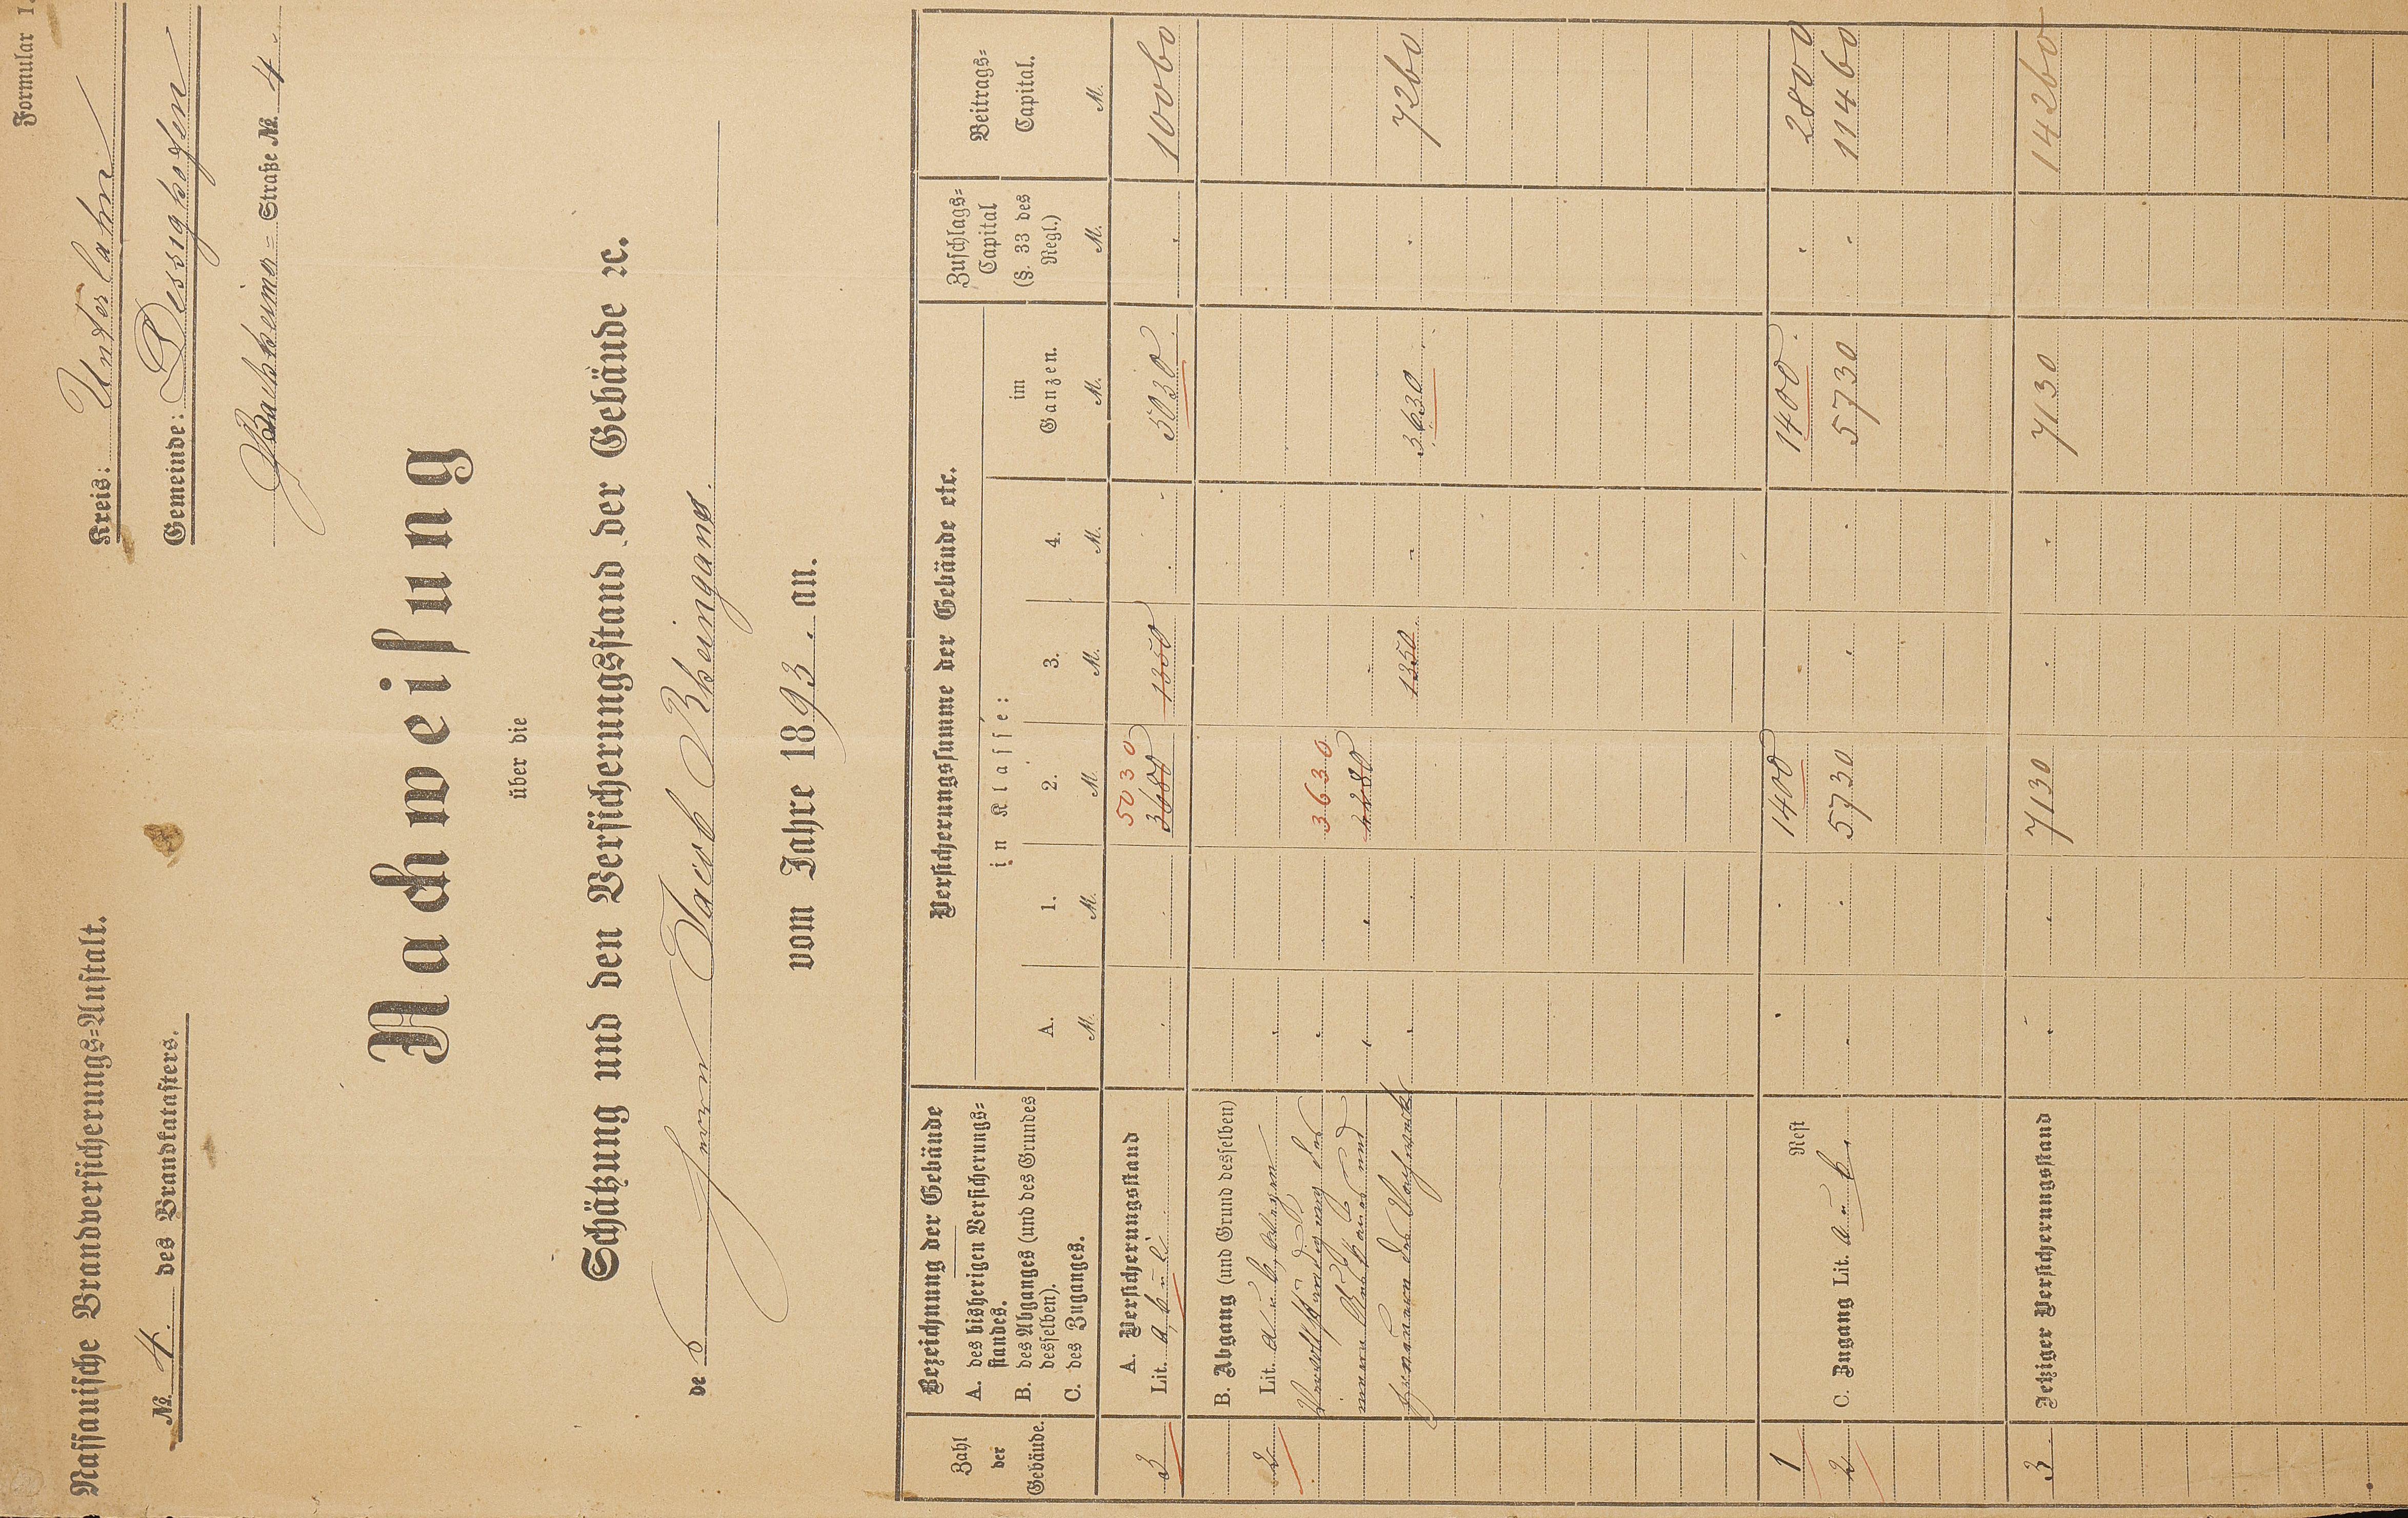 Formular I.
Nassauische Brandversicherungs-Anstalt.
Kreis: Unterlahn
№ 4. des Brandkatasters.
Gemeinde: Dessighofen
Straße № 4.
Nachweisung
über die
Schätzung und den Versicherungsstand der Gebäude ꝛc.
des Herrn Jacob Rheingans.
vom Jahre 1893. an.
Zahl der Gebäude.
Bezeichnung der Gebäude
A. des bisherigen Versicherungs-
standes.
B. des Abganges (und des Grundes
desselben).
C. des Zuganges.
Versicherungssumme der Gebäude etc.
in Klasse:
A. 1. 2. 3. 4. im Ganzen.
M. M. M. M. M. M.
Zuschlags-
Capital
(§. 33 des
Regl.)
M.
Beitrags-
Capital.
M.
A. Versicherungsstand 5030
3 Lit. a, b u. c 3680 1350 5030 10060
B. Abgang (und Grund desselben)
2 Lit. a u. b, wegen
3630
2280
1350 3630 7260
1 Rest 1400 1400 2800
2 C. Zugang Lit. a u. b. 5730 5730 11460
3. Jetziger Versicherungsstand 7130 7130 14260